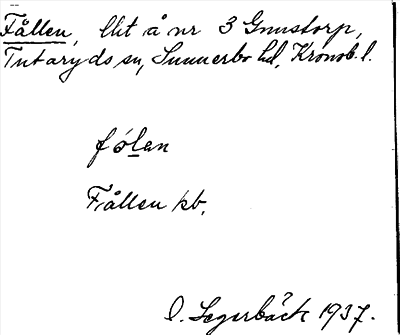 Fållen, lht å nr 3 Gnustorp,
Tutaryds sn, Sunnerbo hd, Kronob. l.
fólan
Fållen kb.
Segerbäck 1937.